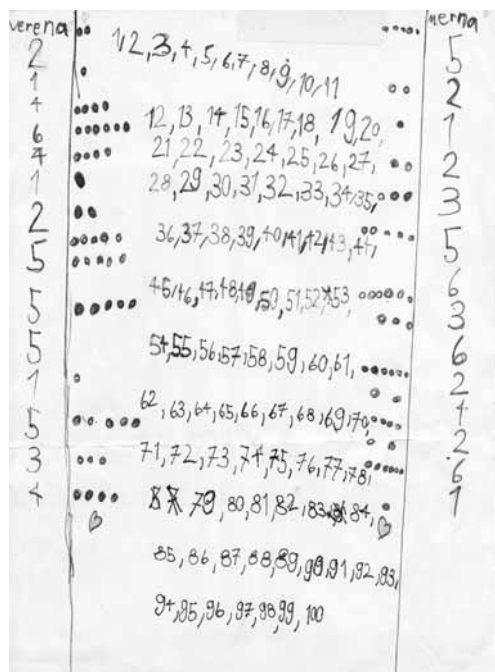 verena
2
1
4
6
4
1
2
5
5
5
1
5
3
4
1,2,3,4,5,6,7,8,9,10,11
12,13,14,15,16,17,18,19,20,
21,22,23,24,25,26,27,
28,29,30,31,32,33,34,35,
36,37,38,39,40,41,42,43,44,
45,46,47,48,49,50,51,52,53,
54,55,56,57,58,59,60,61,
62,63,64,65,66,67,68,69,70,
71,72,73,74,75,76,77,78,
79,80,81,82,83,84,
85,86,87,88,89,90,91,92,93,
94,95,96,97,98,99,100
merna
5
2
1
2
3
5
6
3
6
2
4
2
6
1